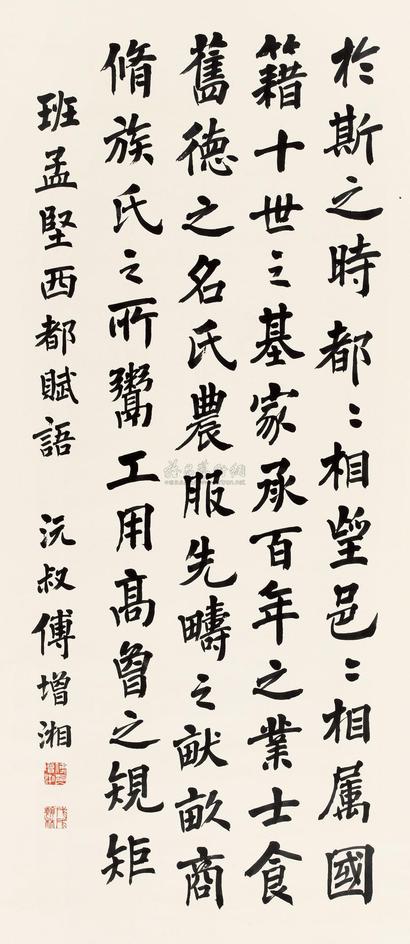 於斯之時都〻相望邑〻相属國
籍十世之基家承百年之業士食
舊徳之名氏農服先疇之畎畝商
脩族氏之所鬻工用髙曾之䂓矩
班孟堅西都賦語 沅叔傅增湘